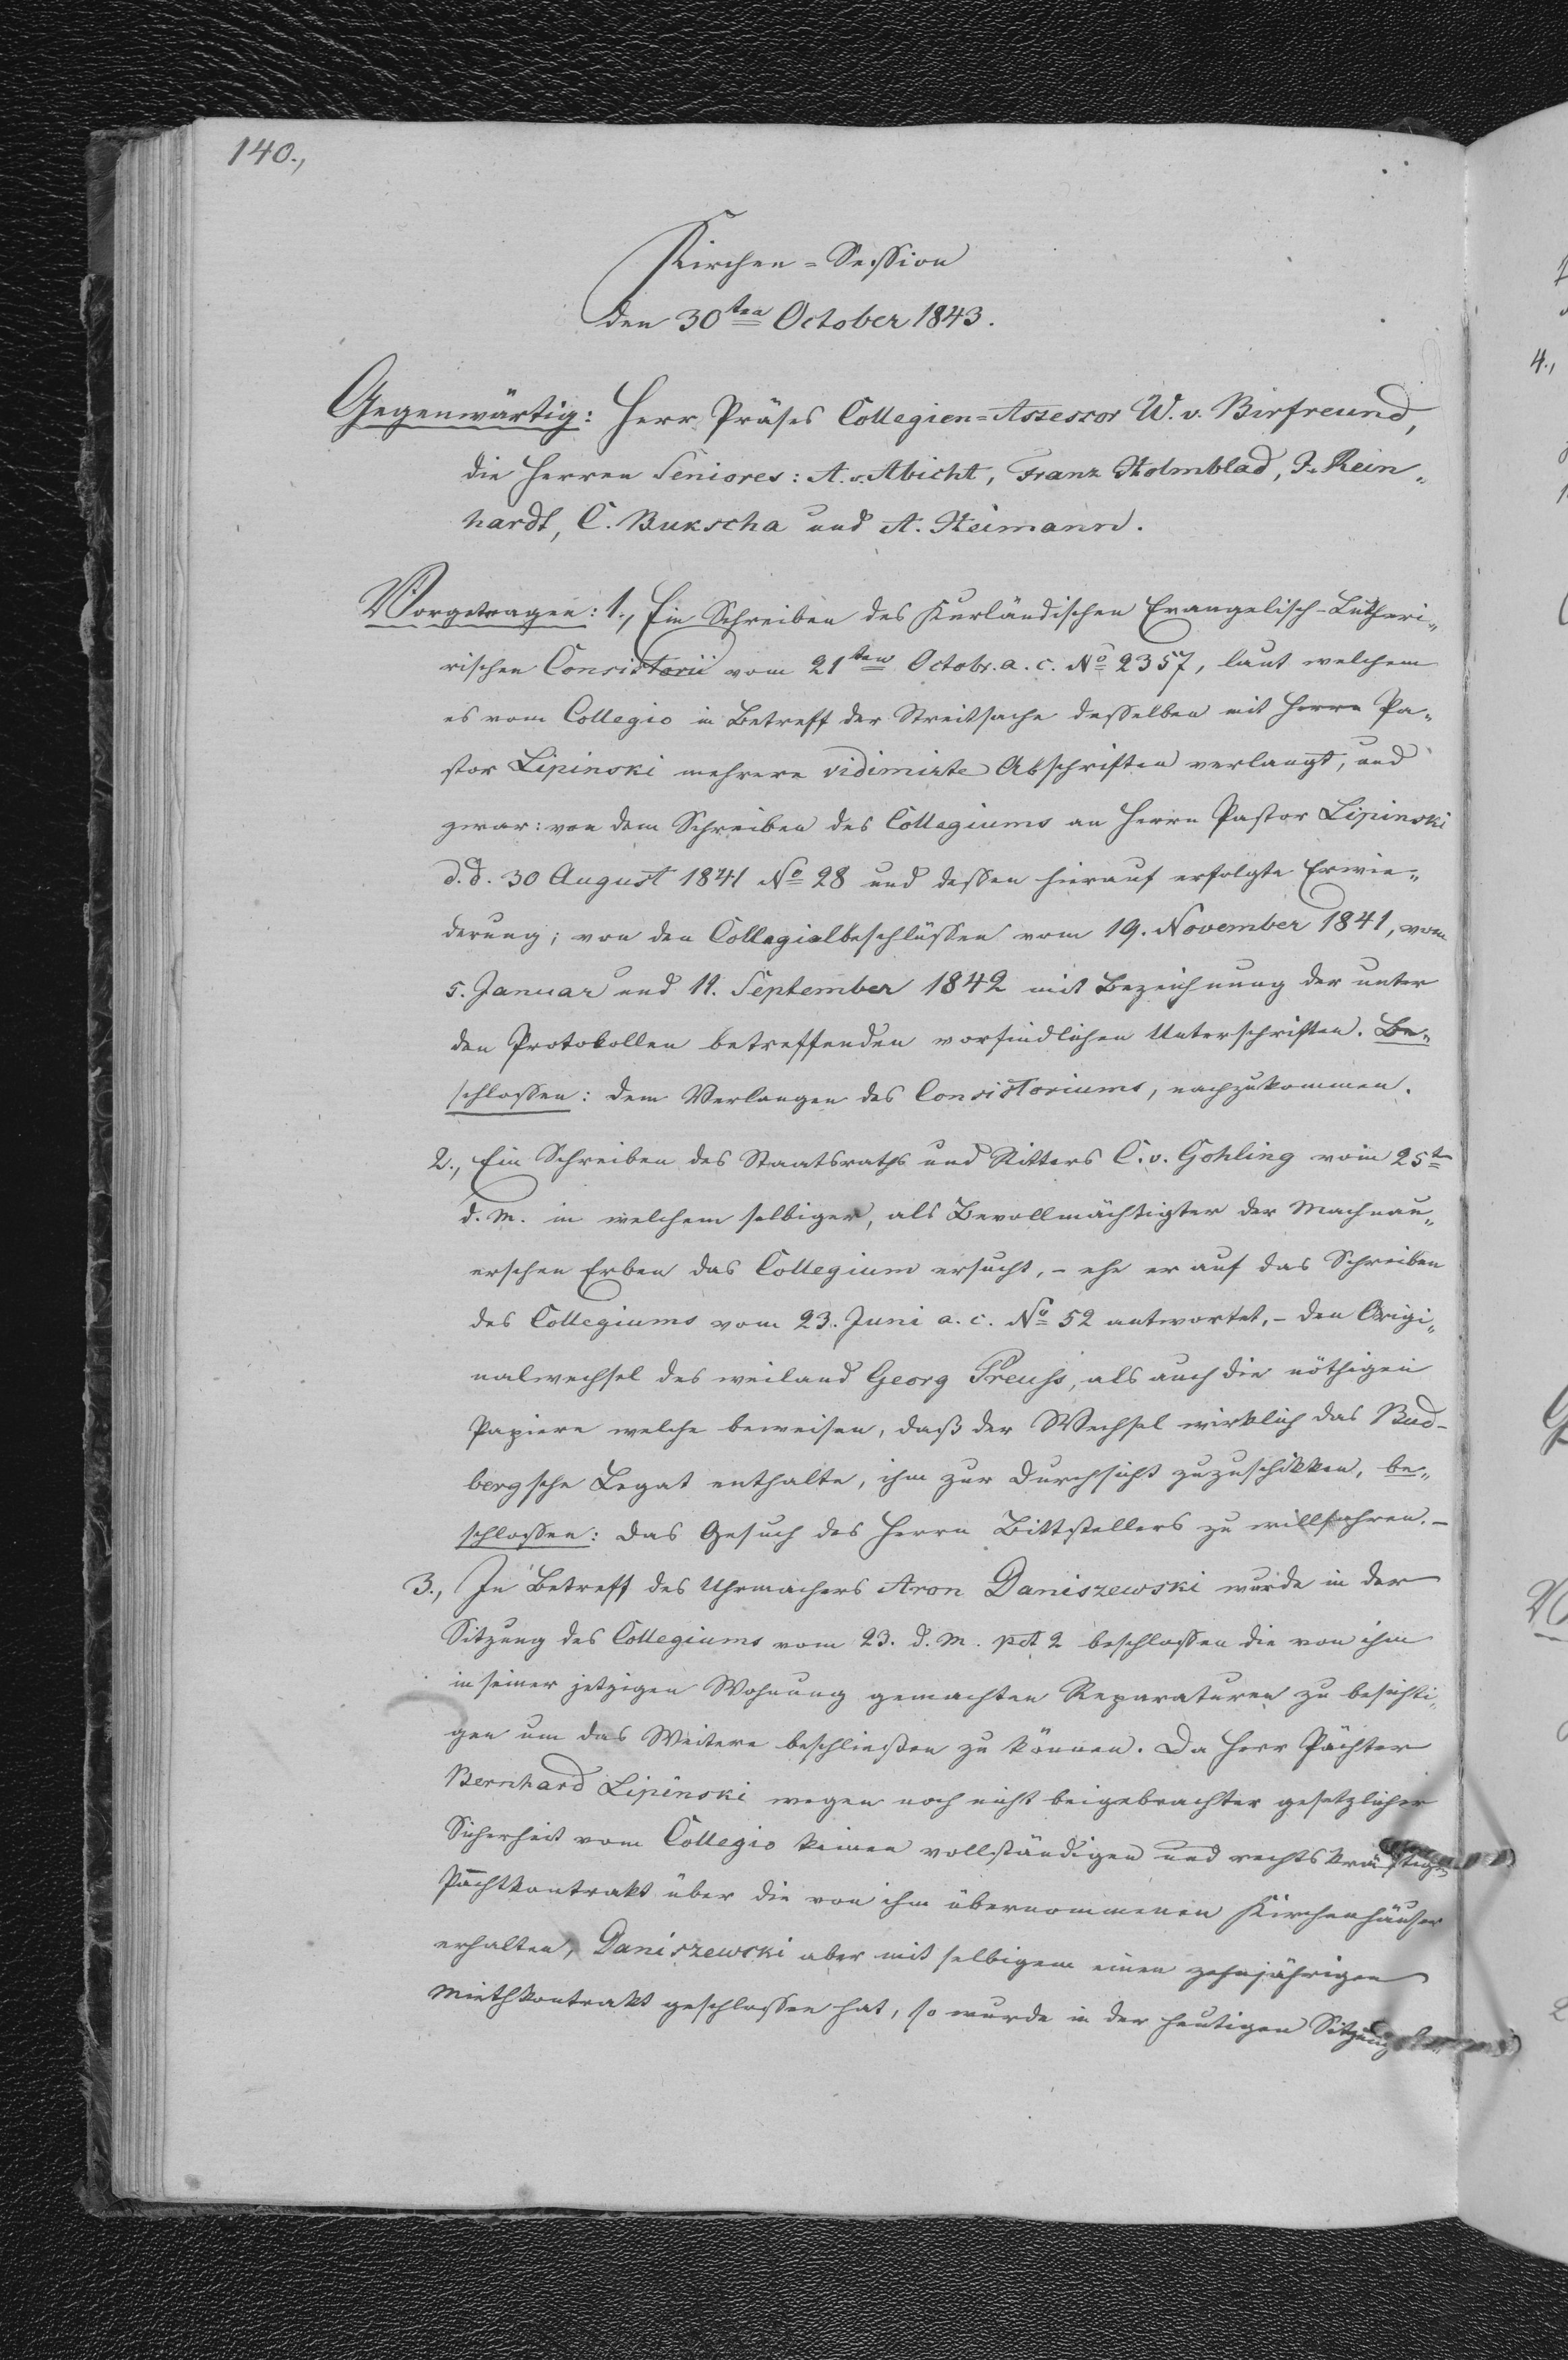 140.,
Kirchen=Session
den 30ten October 1843.
Gegenwärtig: Herr Präses Collegien=Assessor W. v. Birfreund,
die Herren Seniores: A. v. Abicht, Franz Holmblad, J. Rein„
hardt, C. Bukscha und A. Heimann.
Vorgetragen: 1., Ein Schreiben des Kurländischen Evangelisch-Lutheri„
rischen Consistorii vom 21ten Octobr. a. c. No 2357, laut welchem
es vom Collegio in Betreff der Streitsache desselben mit Herrn Pa„
stor Lipinski mehrere vidimirte Abschriften verlangt, und
zwar: von dem Schreiben des Collegiums an Herrn Pastor Lipinski
d. d. 30 August 1841 No 28 und dessen hierauf erfolgte Erwie„
derung; von den Collegialbeschlüssen vom 19. November 1841, vom
5. Januar und 11. September 1842 mit Bezeichnung der unter
den Protokollen betreffenden vorfindlichen Unterschriften. Be„
schlossen: dem Verlangen des Consistoriums, nachzukommen.
2., Ein Schreiben des Staatsraths und Ritters C. v. Gohling vom 25t
d. M. in welchem selbiger, als Bevollmächtigter der Machnau„
erschen Erben das Collegium ersucht, - ehe er auf das Schreiben
des Collegiums vom 23. Juni a. c. No 52 antwortet, - den Origi„
nalwechsel des weiland Georg Preuss, als auch die nöthigen
Papiere welche beweisen, daß der Wechsel wirklich das Bud-
bergsche Legat enthalte, ihm zur Durchsicht zuzuschikken, be„
schlossen: das Gesuch des Herrn Bittstellers zu willfahren. -
3., In Betreff des Uhrmachers Aron Daniszewski wurde in der
Sitzung des Collegiums vom 23. d. M. pct 2 beschlossen die von ihm
in seiner jetzigen Wohnung gemachten Reparaturen zu besichti„
gen um das Weitere beschließen zu können. Da Herr Pächter
Bernhard Lipinski wegen noch nicht beigebrachter gesetzlicher
Sicherheit vom Collegio keinen vollständigen und rechtskräftigen
Pachtkontrakt über die von ihm übernommenen Kirchenhäuser
erhalten, Daniszewski aber mit selbigem einen zehnjährigen
Miethkontrakt geschlossen hat, so wurde in der heutigen Sitzung